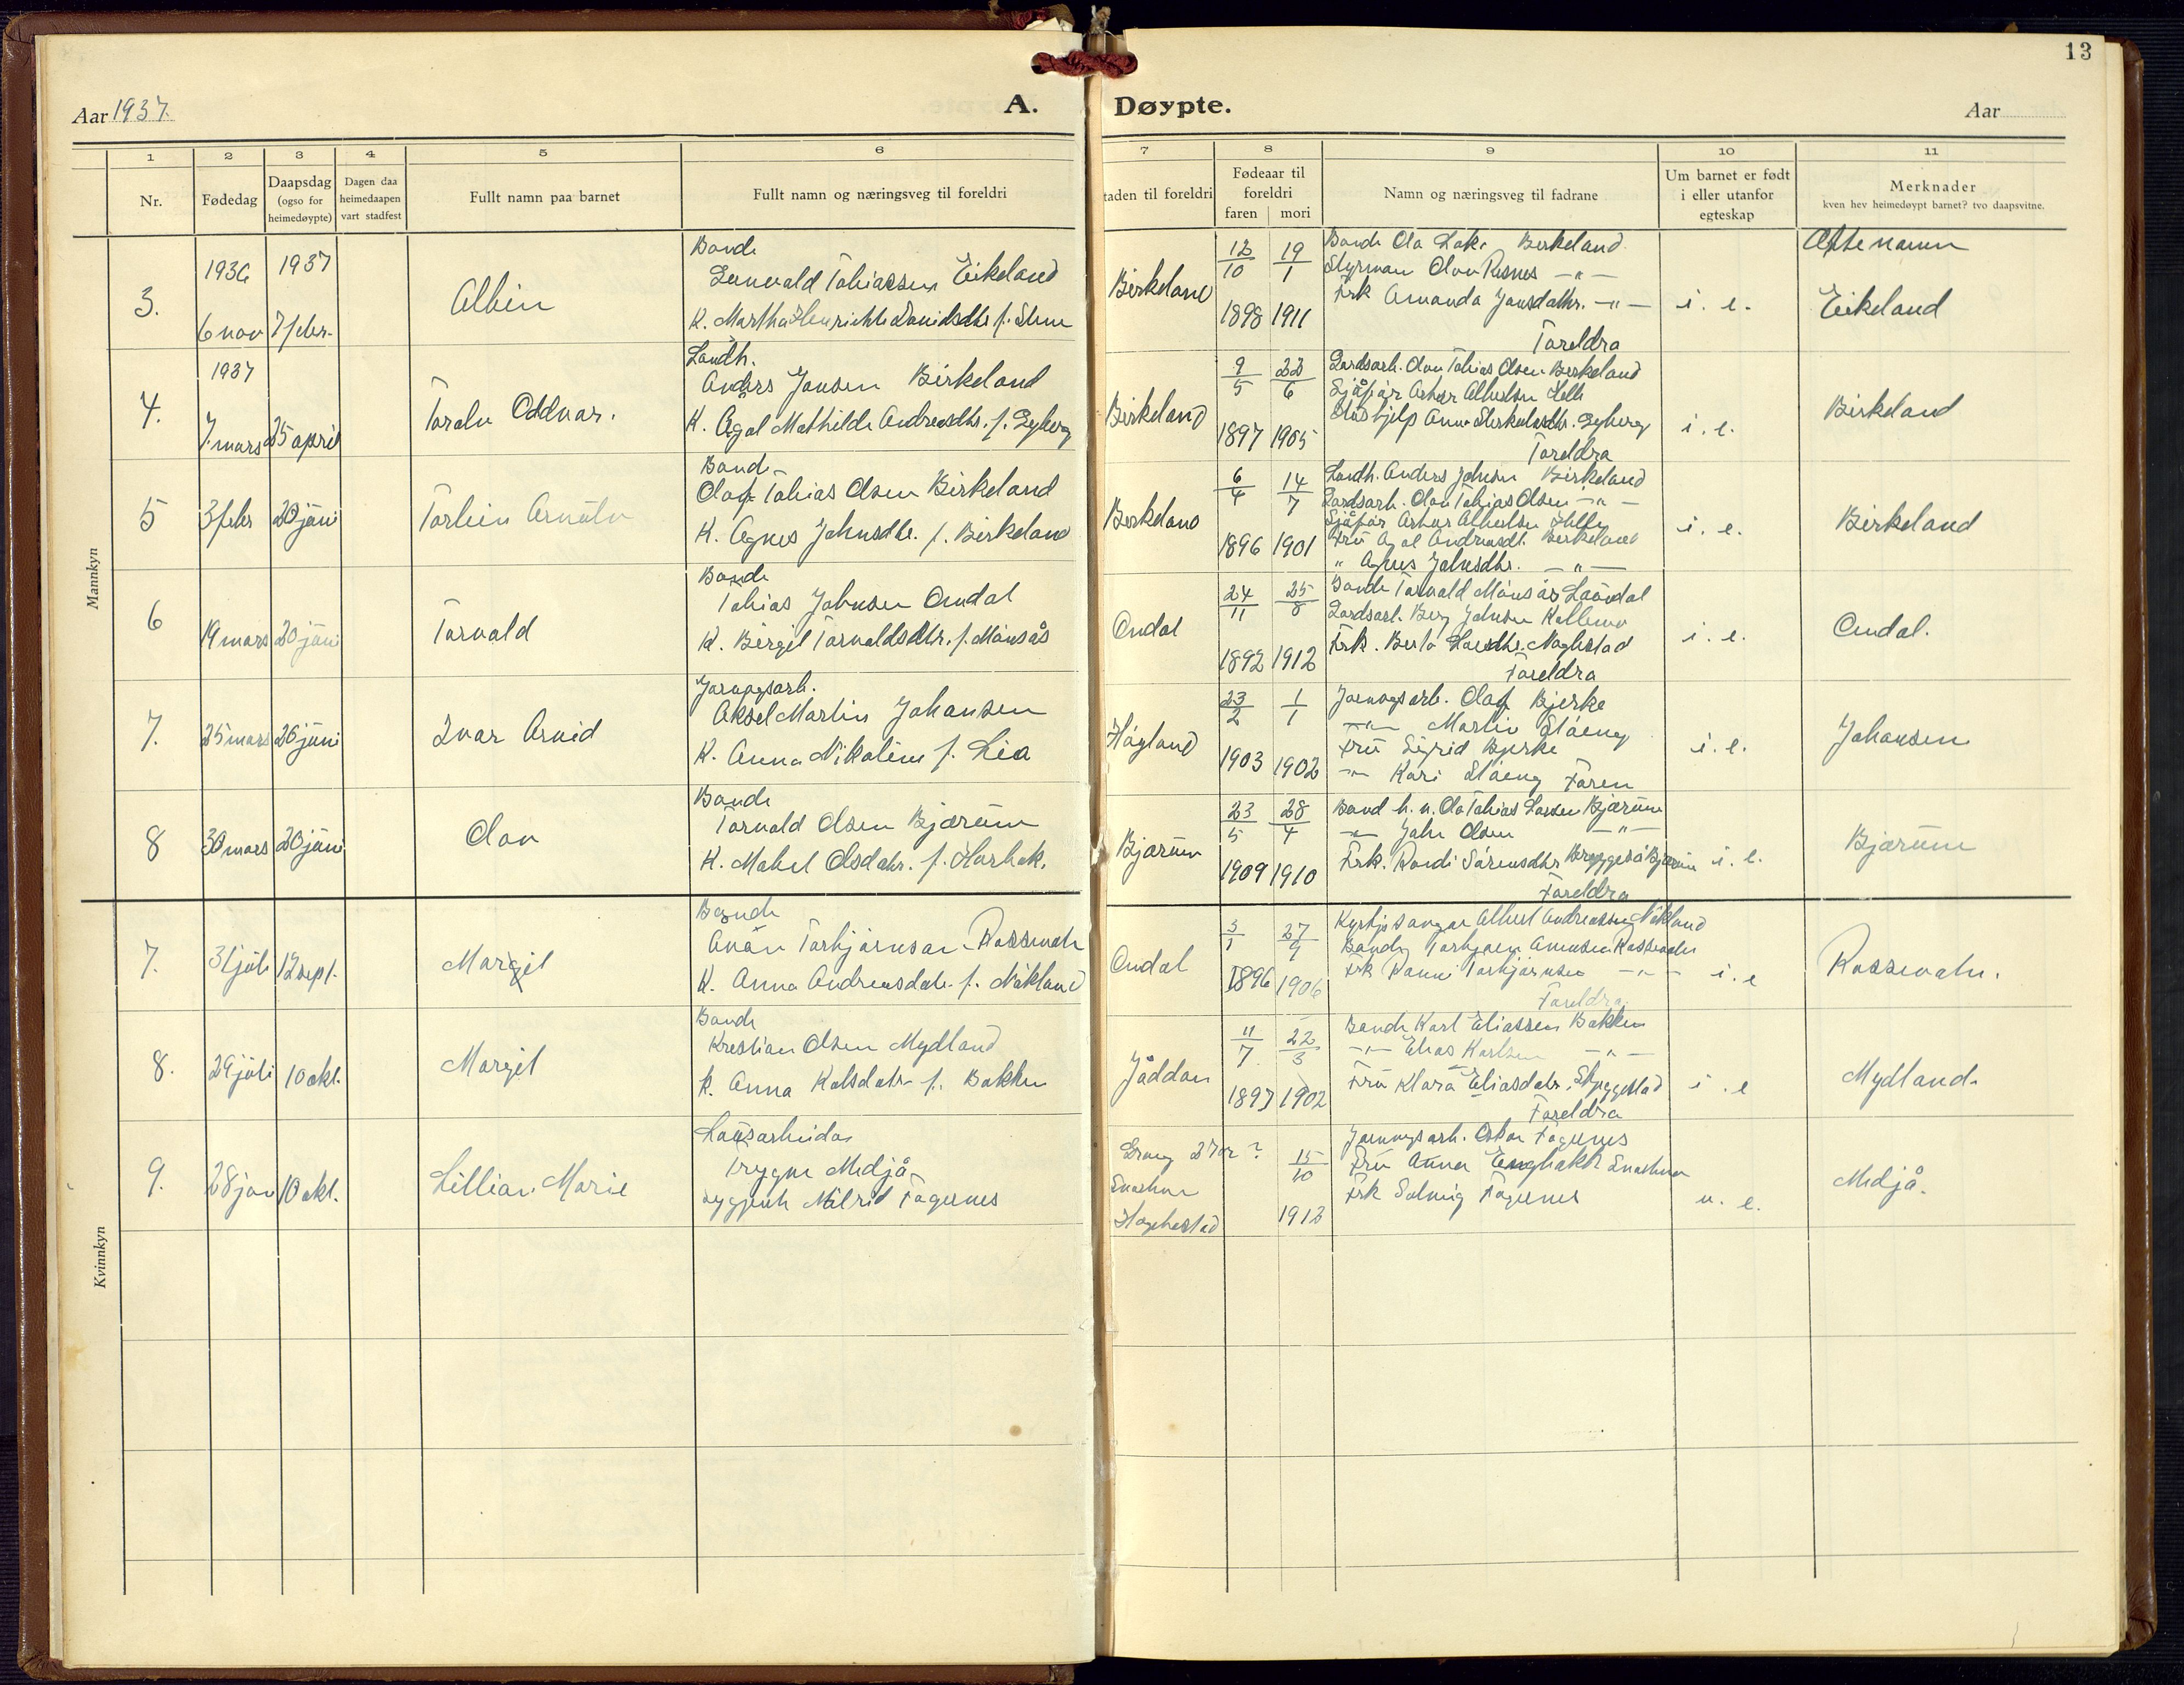 13
Aar 1937.
A.
Døypte.
Aar
1 2 3 4 5 6 7 8 9 10 11
Nr.
Fødedag
Daapsdag
(ogso for
heimedøypte)
Dagen daa
heimedaapen
vart stadfest
Fullt namn paa barnet
Fullt namn og næringsveg til foreldri
taden til foreldri
Fødeaar til
foreldri
faren mori
Namn og næringsveg til fadrane
Um barnet er født
i eller utanfor
egteskap
Merknader
kven hev heimedøypt barnet? tvo daapsvitne.
Mannkyn
3.
1936
6 nov
1937
7 febr.
Albin
Bonde
Tobiassen Eikeland
K. Martha Davidsdtr. f.
Birkeland
12/10 19/1
1898 1911
Bonde Ola Birkeland
Styrmann Olav Risnes -"-
Frk Amanda Jonsdatter. -"-
Foreldra
i. e.
Ættenamn
Eikeland
4.
1937
7. mars
25 april
Toralv Oddvar.
Landh.
Anders Jonsen Birkeland
K. Agal Mathilde Andreasdtr. f. Lyberg
Birkeland
9/5 22/6
1897 1905
Gardsarb. Olav Tobias Olsen Birkeland
Sjåfør Arthur Albertsen
Hushjelp Anna
Foreldra
i. e.
Birkeland
5
3 febr
20 juni
Torleiv Arnulv
Bonde
Olaf Tobias Olsen Birkeland
K. Agnes Johnsdtr. f. Birkeland
Birkeland
6/4 14/7
1896 1901
Landh. Anders Johnsen Birkeland
Gardsarb. Olav Tobias Olsen -"-
Sjåfør Arthur Albertsen
Fru Agal Andreasdt. Birkeland
" Agnes Johnsdtr. -"-
i. e.
Birkeland
6
19 mars
20 juni
Torvald
Bonde
Tobias Johnsen Omdal
K. Birgit Torvaldsdtr. f. Monsås
Omdal
24/11 25/8
1892 1912
Bonde Torvald Monsås Laudal
Gardsarb. Berg Johnsen
Frk. Berta Haugestad
Foreldra
i. e.
Omdal.
7.
25 mars
26 juni
Ivar Arvid
Jarnvgsarb.
Aksel Martin Johansen
K. Anna Nikoline f. Lia
Høgland
23/2 1/1
1903 1902
Jarnvegsarb. Olaf Bjerke
-"- Martin Slåeng
Fru Sigrid Bjerke
-"- Kari Slåeng Faren
i. e.
Johansen
8
30 mars
20 juni
Olav
Bonde
Torvald Olsen Bjærum
K. Mabel Olsdatr. f. Harbak.
Bjærum
23/5 28/4
1909 1910
Bond h. n. Ola Tobias Larsen Bjærum
-"- John Olsen -"-
Frk. Randi Sørensdtr Bjærum
Foreldra
i. e.
Bjærum
Kvinnkyn
7.
31 juli
12 sept.
Margit
Bonde
Anån Torbjørnsen Rossevatn
K. Anna Andreasdatr. f. Nökland
Omdal
3/1 27/9
1896 1906
Kyrkjesangar Albert Andreassen Nökland
Bonde Torbjørn Anensen Rossevatn
Frk Torbjørnsen -"-
Foreldra.
i. e
Rossevatn.
8.
29 juli
10 okt.
Margit
Bonde
Kristian Olsen Mydland
K. Anna Karlsdatr. f. Bakken
Jåddan
11/7 22/3
1897 1902
Bonde Karl Eliassen Bakken
-"- Elias Karlsen -"-
Fru Klara Eliasdatr. Skyggestad
Foreldra
i. e
Mydland.
9.
28 jan
10 okt.
Lillian Marie
Lausarbeidar
Trygve Midjå
og Fagernes
27 år ?
Snartemo
Hægebostad
15/10
1912
Jarnvegsarb. Oskar Fagernes
Fru Anna Snartemo
Frk Solveig Fagernes
u. e.
Midjå.